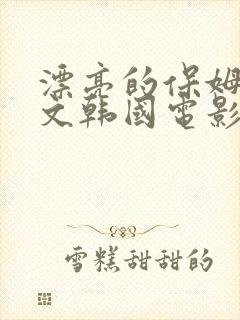 漂亮的保姆
文韩国电影
雪糕甜甜的